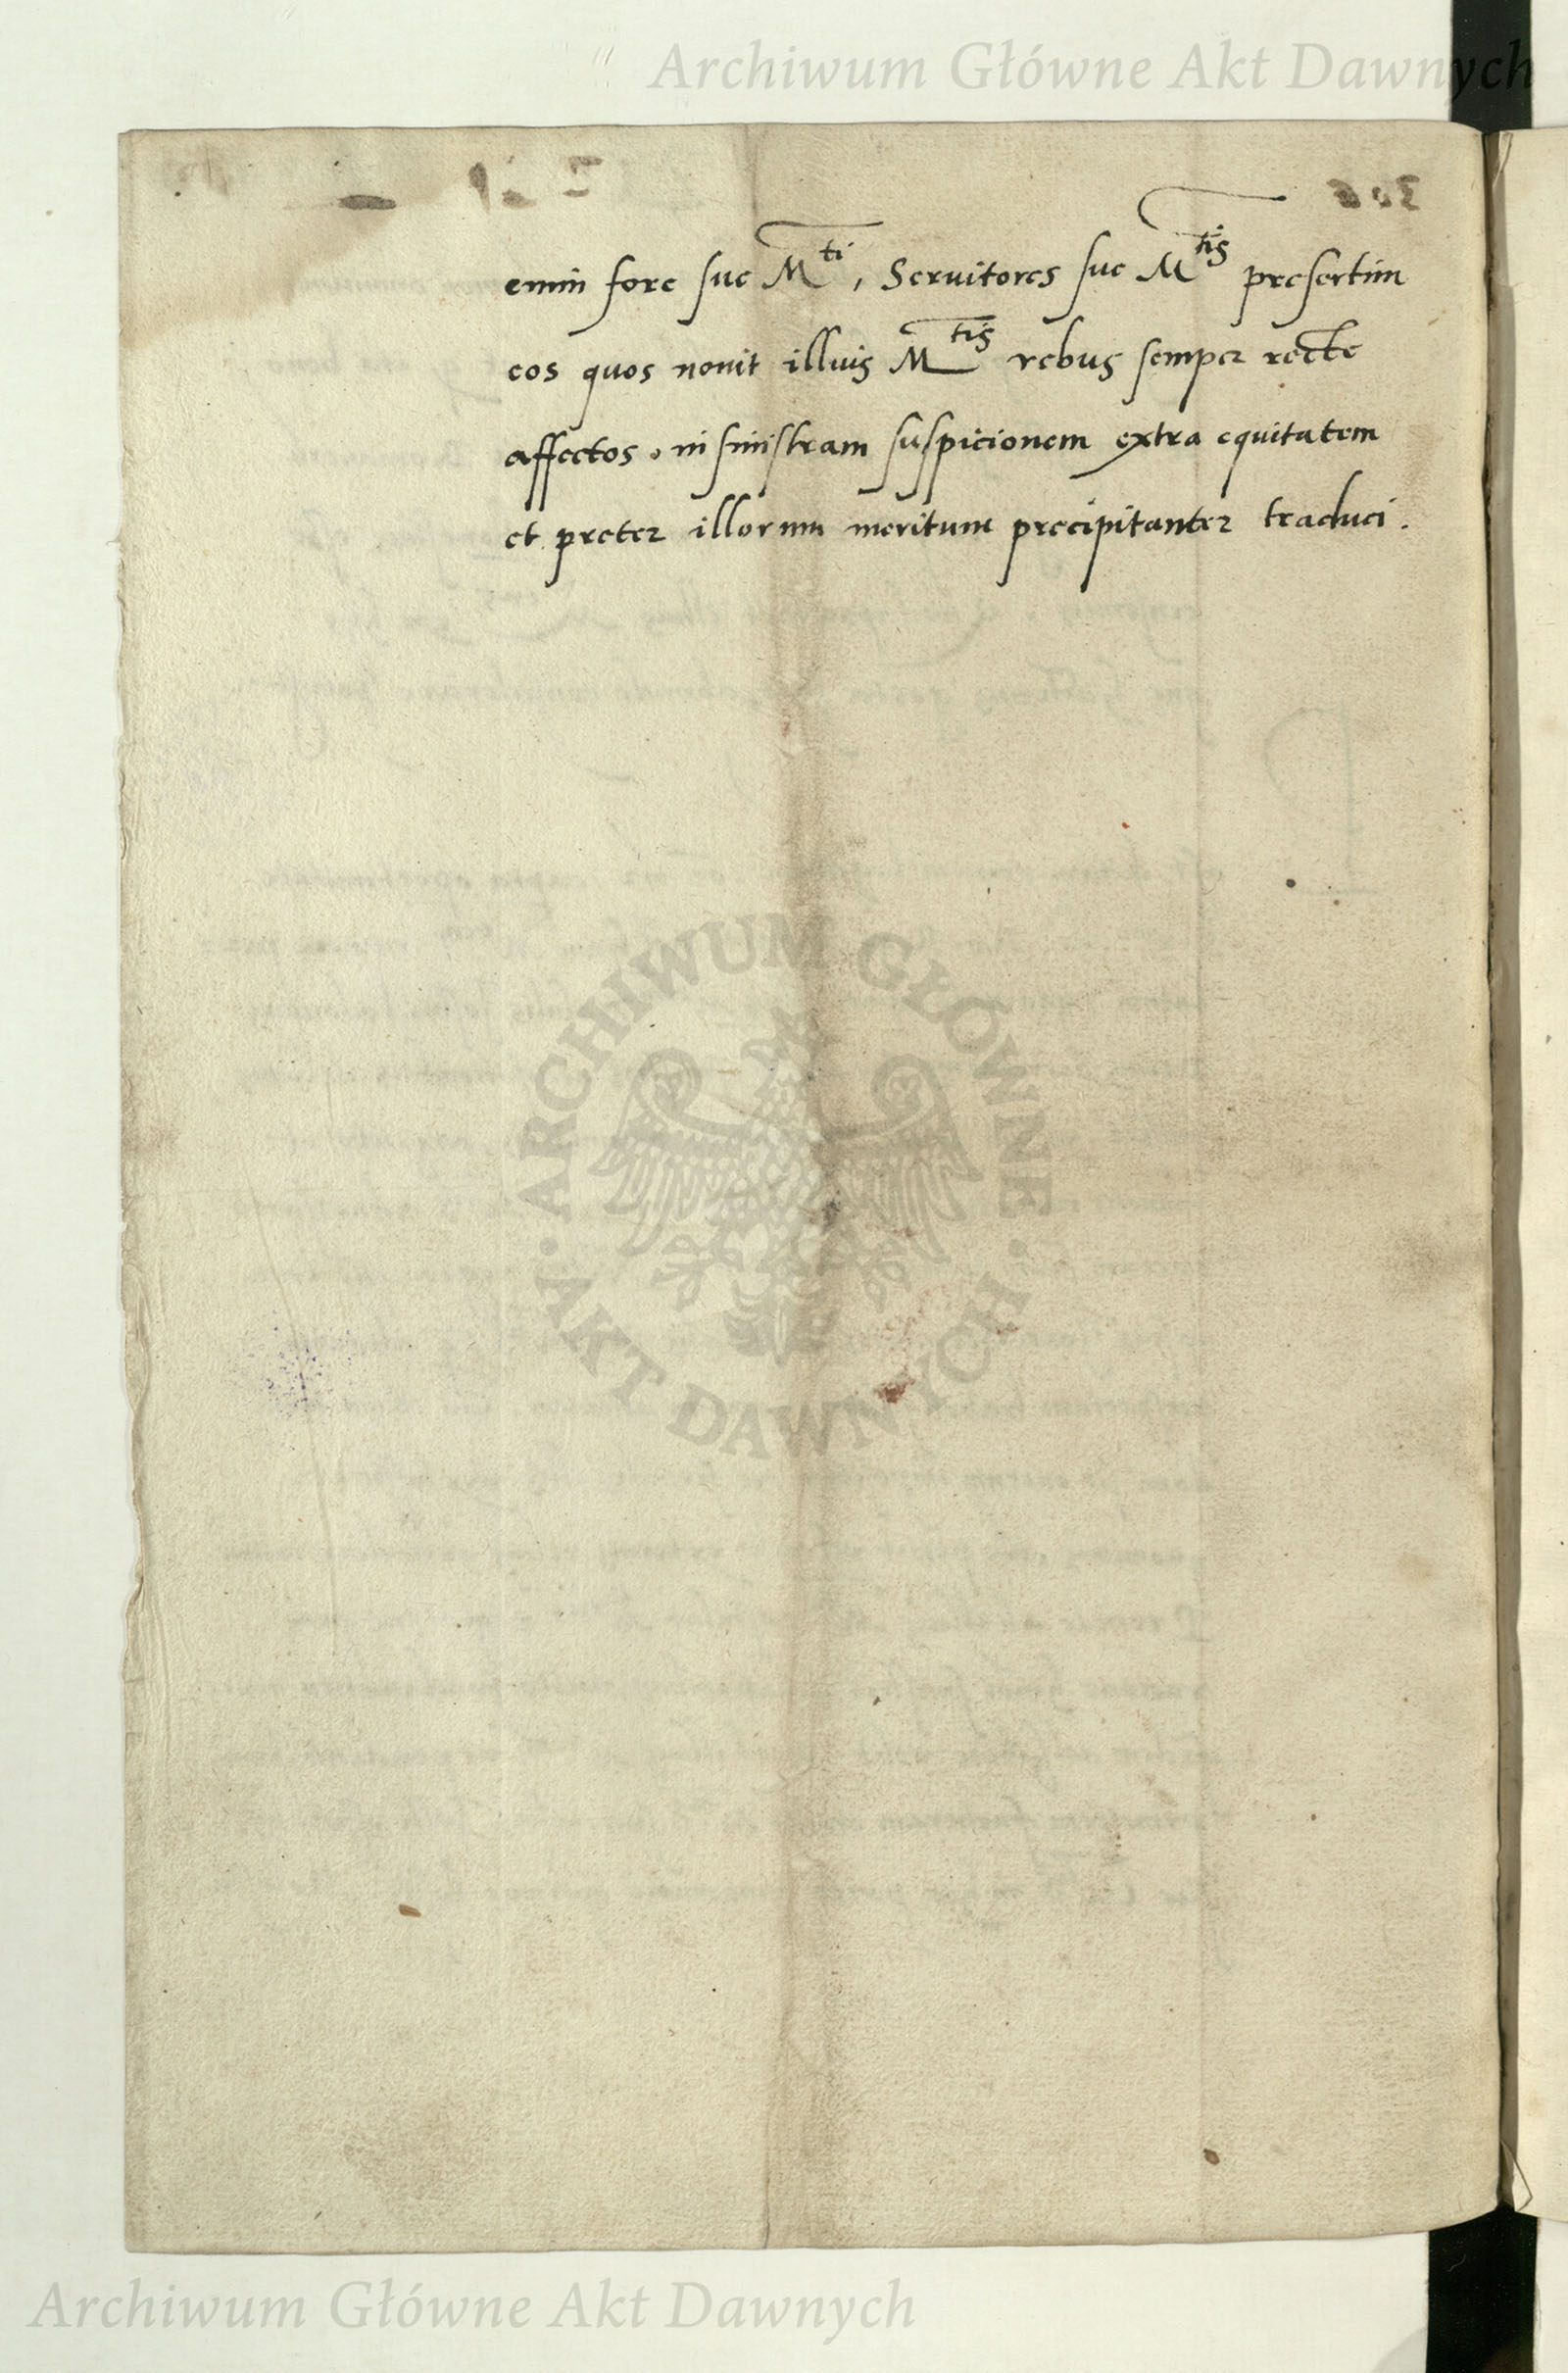 Archiwum Główne Akt Dawnych
enim fore sue M^ti, Seruitores sue M^tis presertim
eos quos nouit illius M^tis rebus semper recte
affectos, in sinistram suspicionem extra equitatem
et preter illorum meritum precipitanter traduci.
ARCHIWUM GŁÓWNE · AKT DAWNYCH ·
Archiwum Główne Akt Dawnych